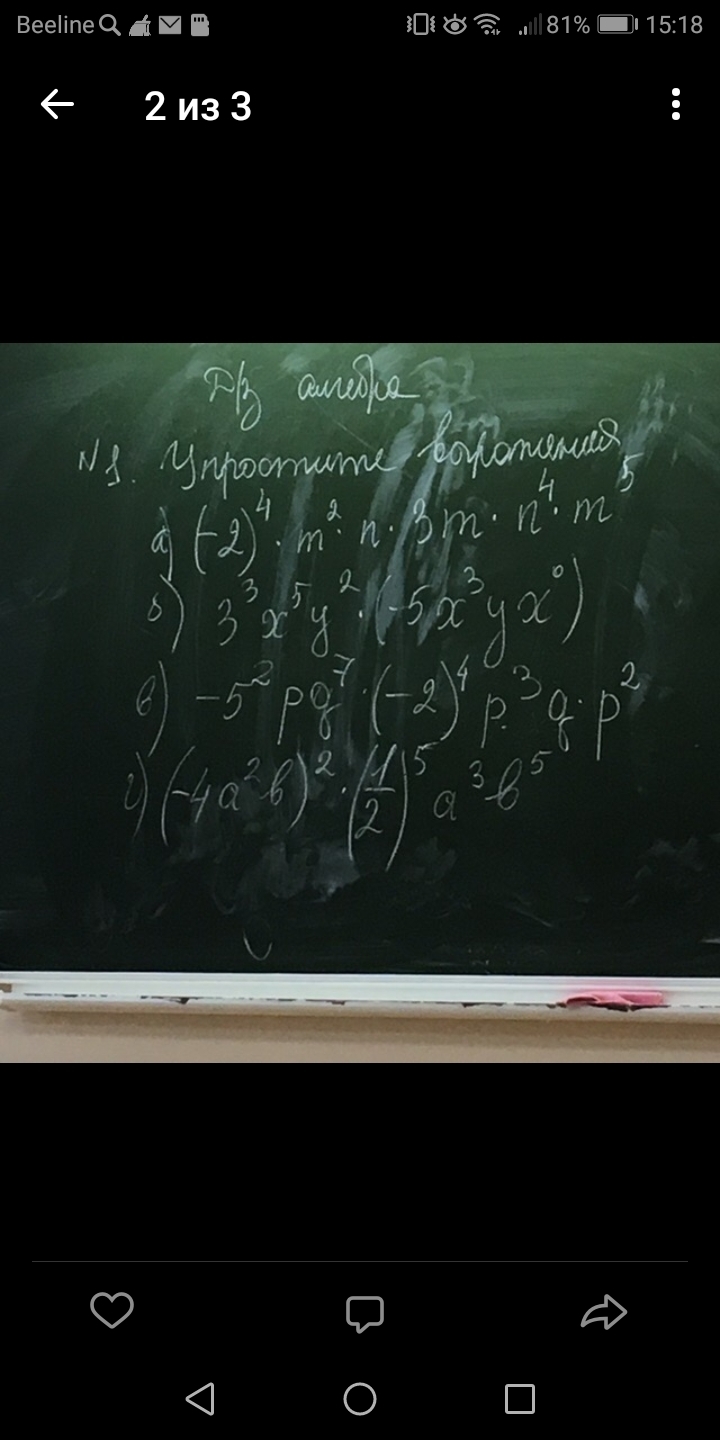 Beeline 81% 15:18
2 из 3
Д/з алгебра
№1. Упростите выражения
а) (-2)⁴ · m² · n · 3m · n⁴ · m⁵
б) 3³x⁵y² · (-5x³yx⁰)
в) -5²pq⁷ · (-2)⁴p³q · p²
г) (-4a²b)² · (1/2)⁵ a³b⁵